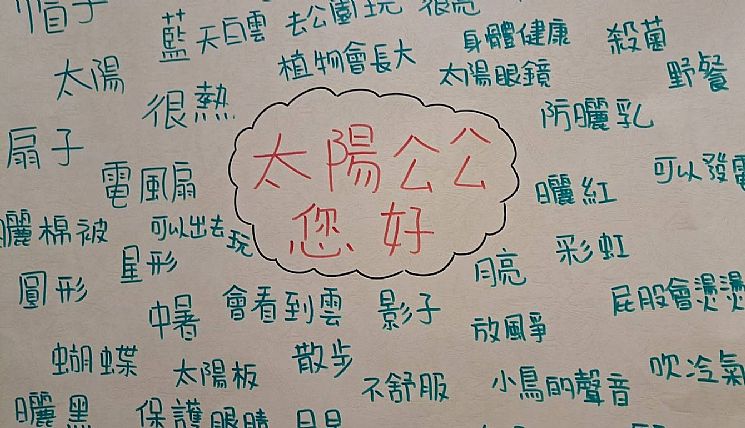 帽子
藍天白雲
去公園玩
很亮
太陽
很熱
植物會長大
身體健康
太陽眼鏡
殺菌
野餐
防曬乳
扇子
電風扇
太陽公公
您好
曬紅
可以發電
曬棉被
可以出去玩
星形
圓形
月亮
彩虹
中暑
會看到雲
影子
放風爭
屁股會燙燙
蝴蝶
太陽板
散步
不舒服
小鳥的聲音
吹冷氣
曬黑
保護眼睛